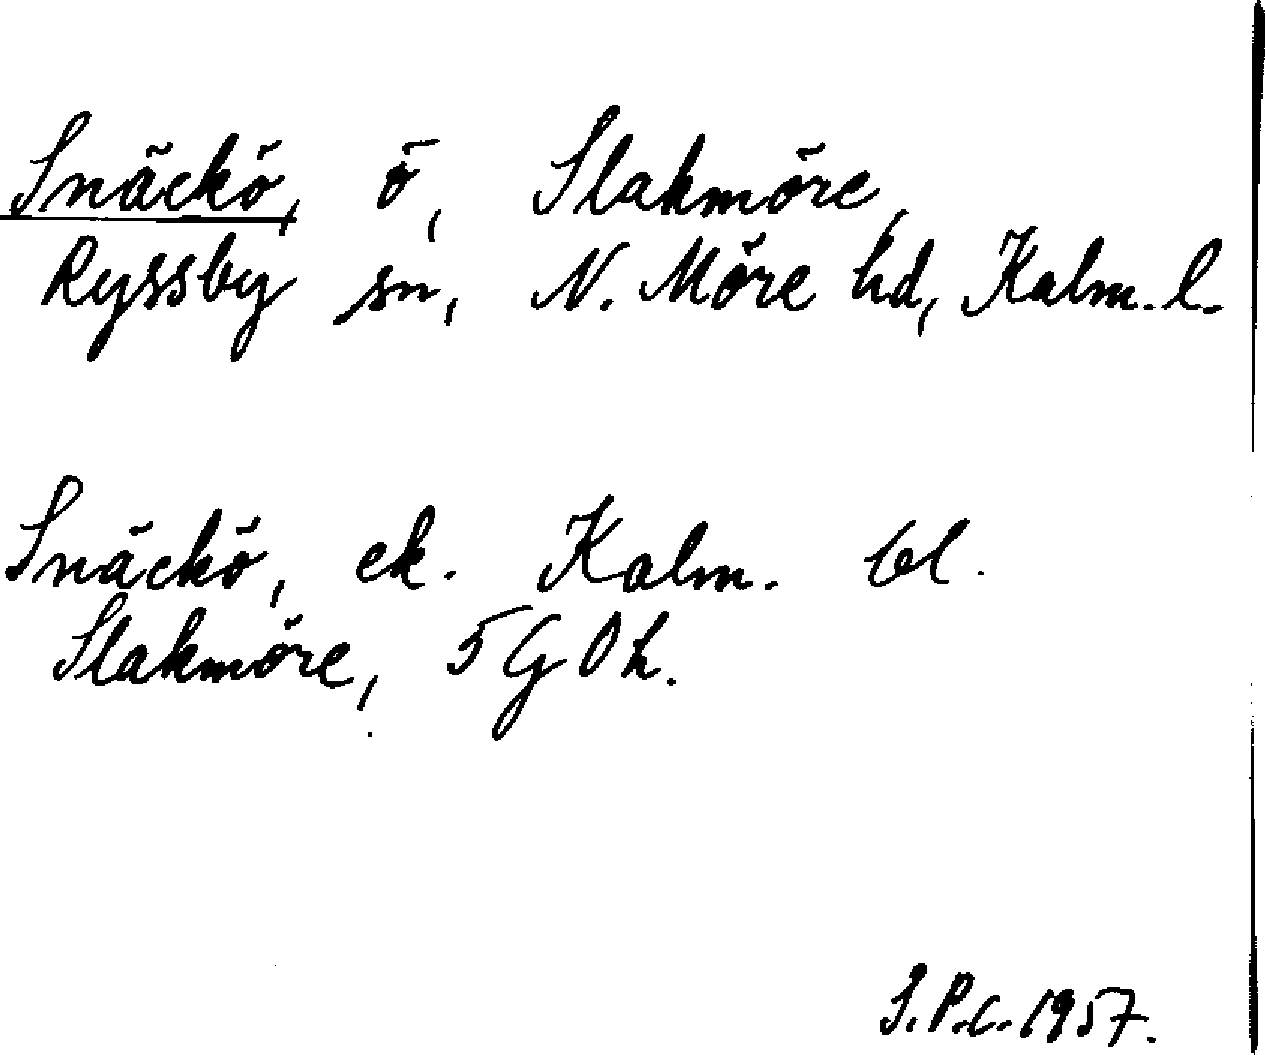 Snäckö, ö, Slakmöre,
Ryssby sn, N. Möre hd, Kalm. l.
Snäckö, ek. Kalm. bl.
Slakmöre, 5G0h.
S.P.C. 1957.